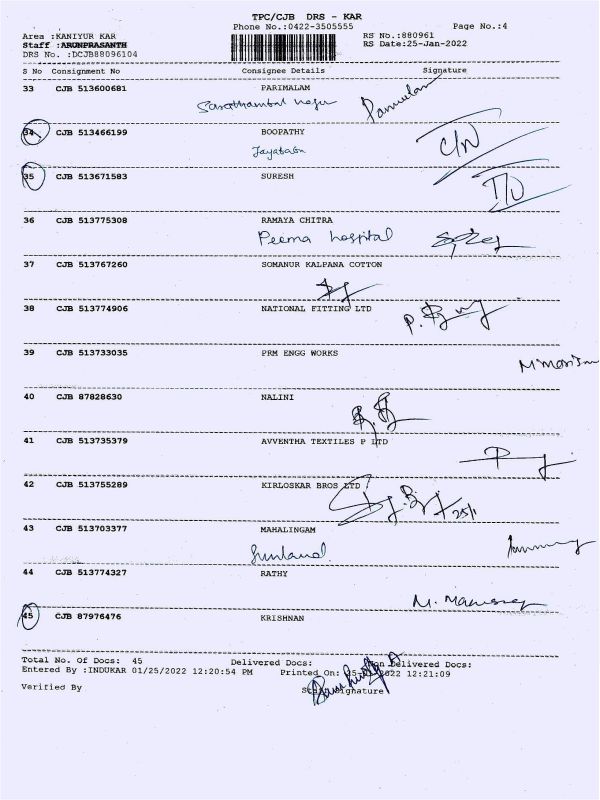 TPC/CJB DRS - KAR
Phone No.:0422-3505555 Page No.:4
Area :KANIYUR KAR RS No.:880961
Staff :ARUNPRASANTH RS Date:25-Jan-2022
DRS No. :DCJB88096104
S No Consignment No Consignee Details Signature
33 CJB 513600681 PARIMALAM
34 CJB 513466199 BOOPATHY
35 CJB 513671583 SURESH
36 CJB 513775308 RAMAYA CHITRA
Peema hospital
37 CJB 513767260 SOMANUR KALPANA COTTON
38 CJB 513774906 NATIONAL FITTING LTD
39 CJB 513733035 PRM ENGG WORKS
40 CJB 87828630 NALINI
41 CJB 513735379 AVVENTHA TEXTILES P LTD
42 CJB 513755289 KIRLOSKAR BROS LTD
25/1
43 CJB 513703377 MAHALINGAM
44 CJB 513774327 RATHY
45 CJB 87976476 KRISHNAN
Total No. Of Docs: 45 Delivered Docs: Non Delivered Docs:
Entered By :INDUKAR 01/25/2022 12:20:54 PM Printed On: 25-01-2022 12:21:09
Verified By Staff Signature